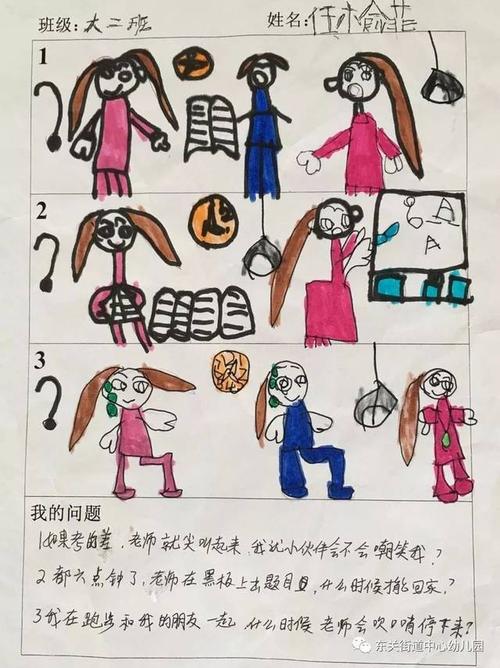 班级: 大二班 姓名:
1
2
A
3
我的问题
1如果考的差,老师就尖叫起来,我说小伙伴会不会嘲笑我?
2都六点钟了,老师在黑板上出题目,什么时候才能回家?
3我在跑步和我的朋友一起,什么时候老师会吹口哨停下来?
东关街道中心幼儿园